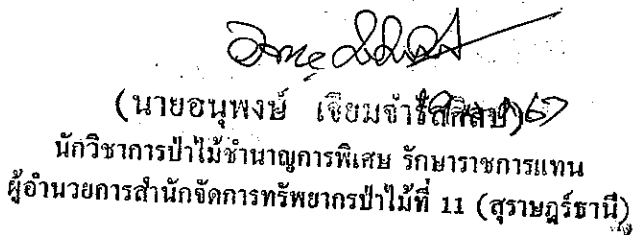 (นายอนุพงษ์
นักวิชาการป่าไม้ชำนาญการพิเศษ รักษาราชการแทน
ผู้อำนวยการสำนักจัดการทรัพยากรป่าไม้ที่ 11 (สุราษฎร์ธานี)